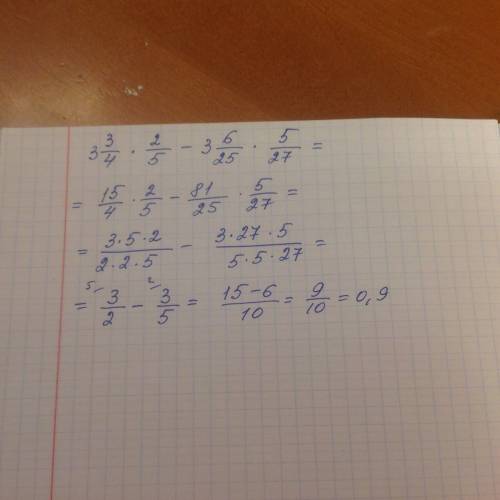 3 3/4 · 2/5 − 3 6/25 · 5/27 =
= 15/4 · 2/5 − 81/25 · 5/27 =
= 3·5·2/2·2·5 − 3·27·5/5·5·27 =
= ⁵⁻ 3/2 − ²⁻ 3/5 = 15−6/10 = 9/10 = 0,9